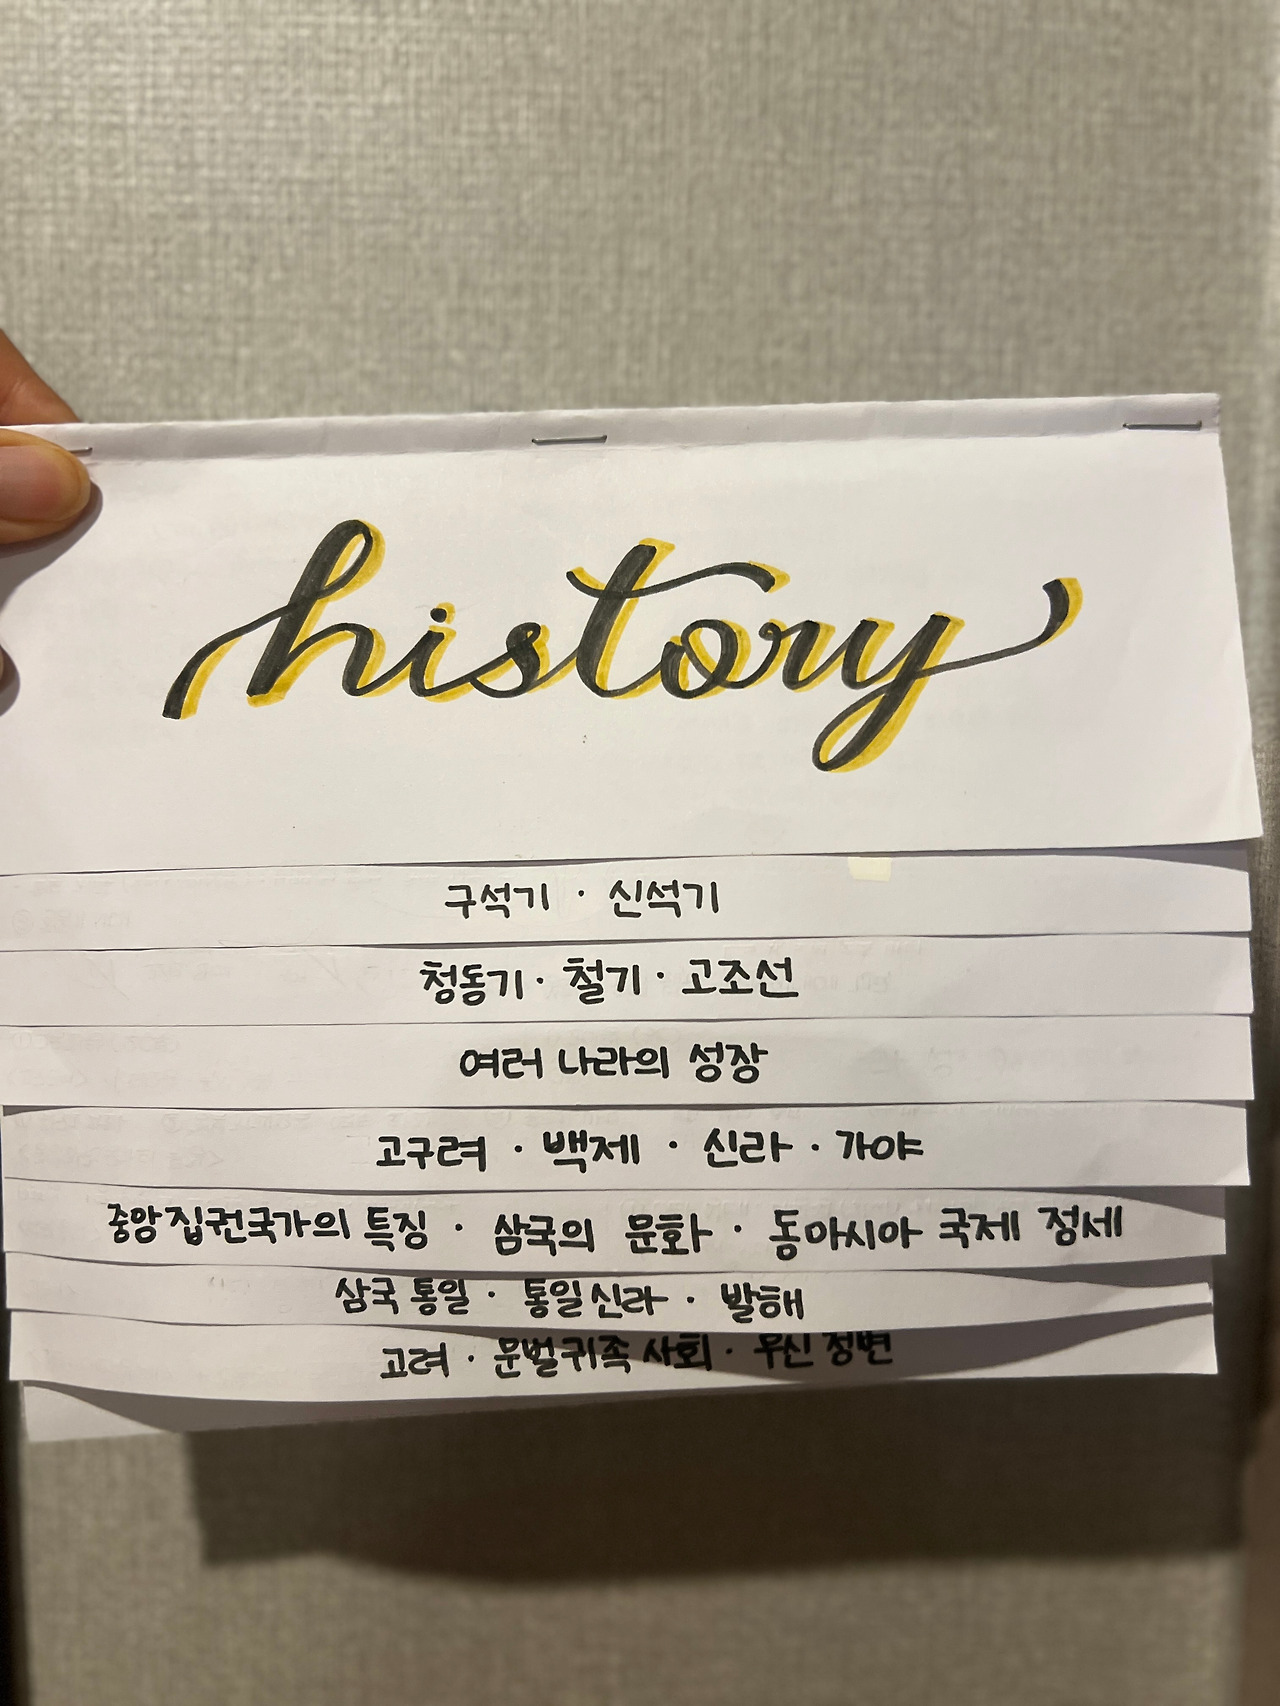 history
구석기 · 신석기
청동기 · 철기 · 고조선
여러 나라의 성장
고구려 · 백제 · 신라 · 가야
중앙집권국가의 특징 · 삼국의 문화 · 동아시아 국제 정세
삼국 통일 · 통일신라 · 발해
고려 · 문벌귀족 사회 · 무신 정변